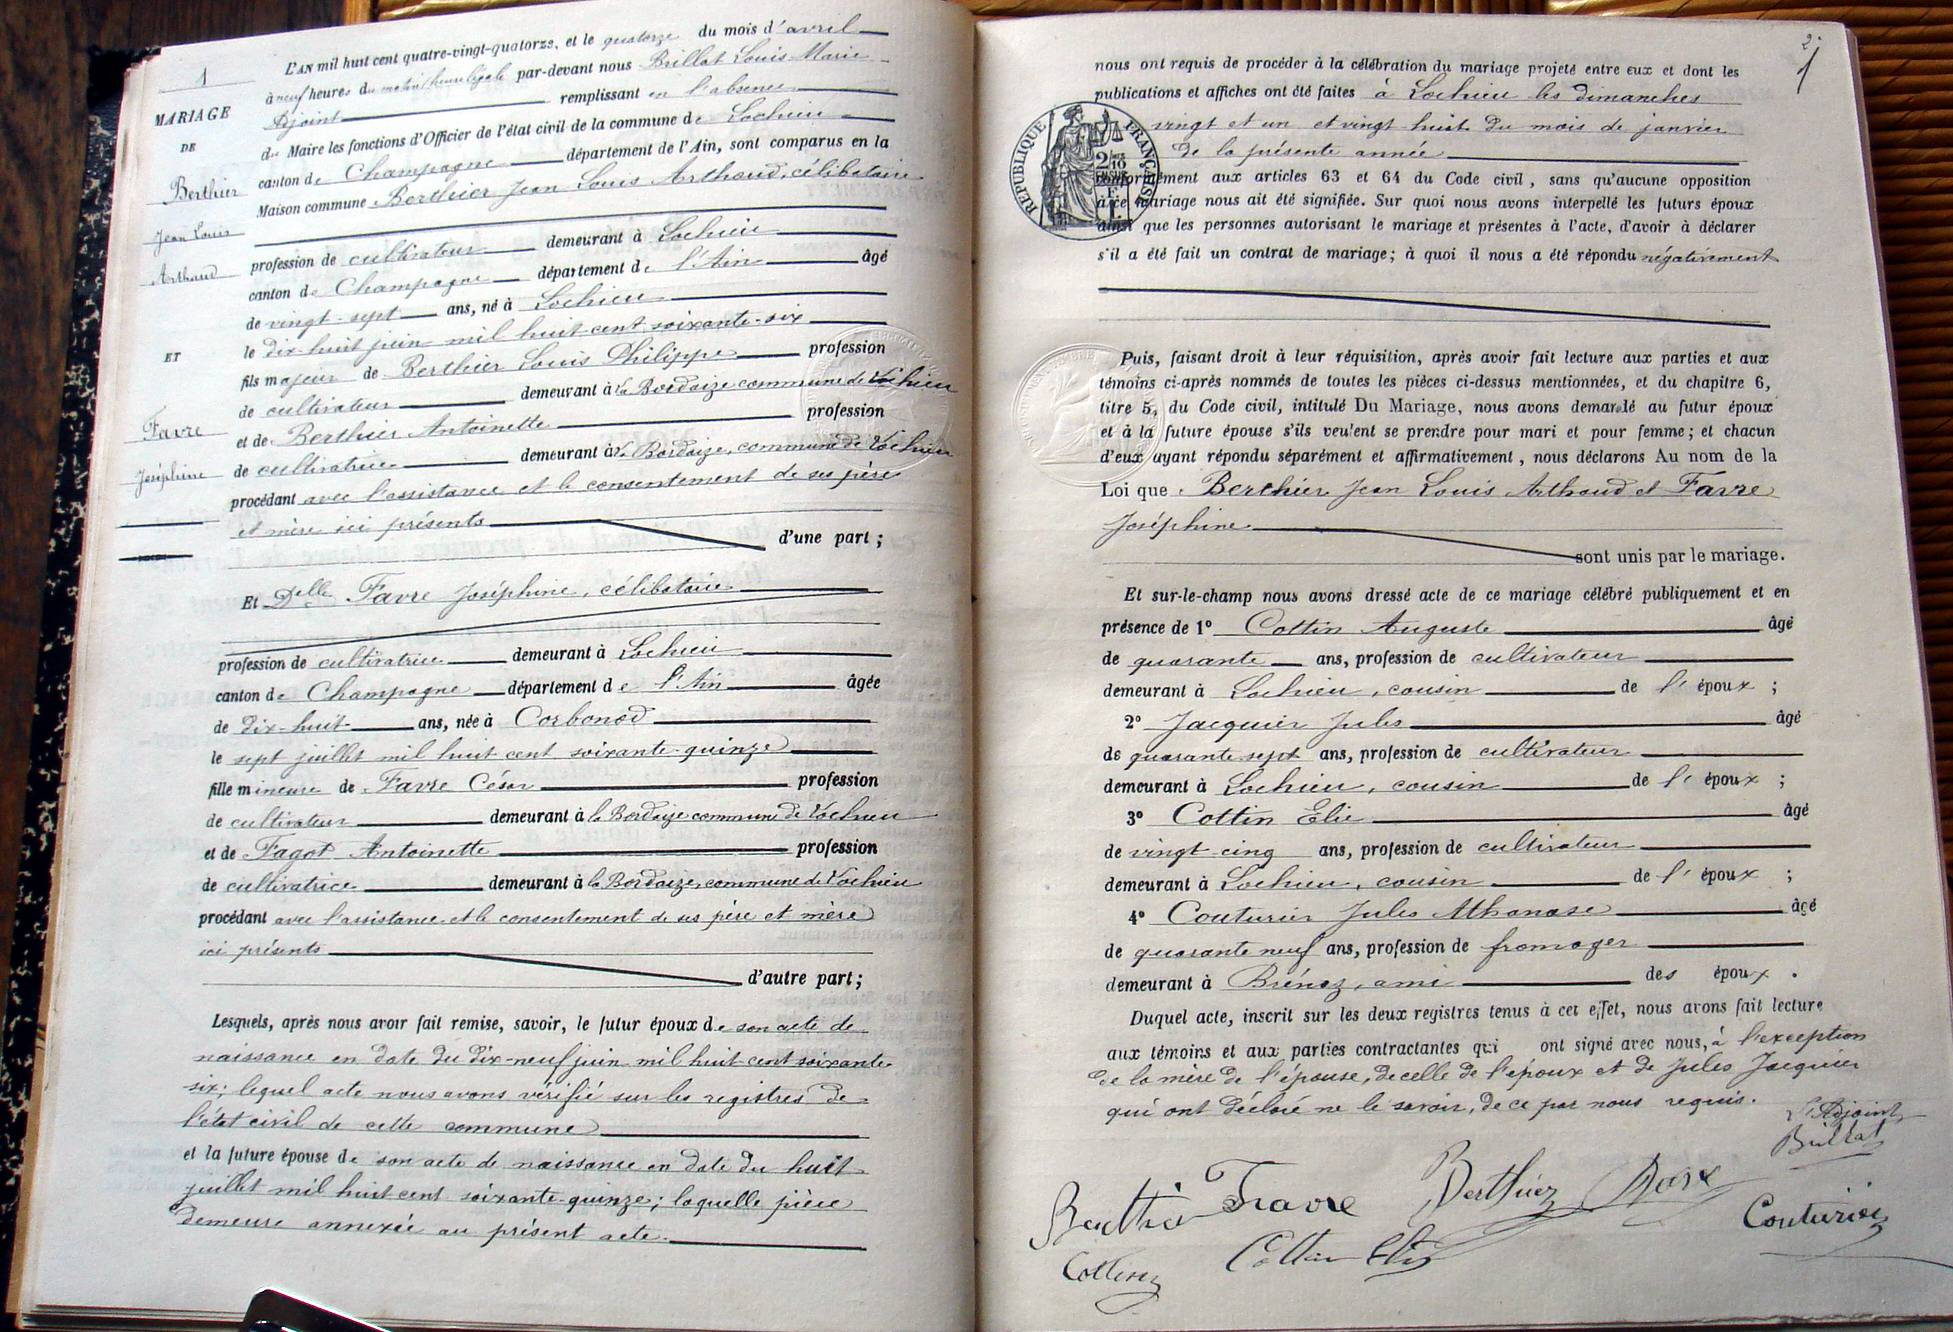 1
MARIAGE
DE
Berthier
Jean Louis
Arthaud
ET
Favre
Joséphine
L'AN mil huit cent quatre-vingt-quatorze, et le quatorze du mois d'avril
à neuf heures du matin, heure légale par-devant nous Brillat Louis Marie
Adjoint remplissant en l'absence
du Maire les fonctions d'Officier de l'état civil de la commune de Lochieu
canton de Champagne département de l'Ain, sont comparus en la
Maison commune Berthier Jean Louis Arthaud, célibataire
profession de cultivateur demeurant à Lochieu
canton de Champagne département de l'Ain âgé
de vingt-sept ans, né à Lochieu
le dix-huit juin mil huit cent soixante-six
fils majeur de Berthier Louis Philippe profession
de cultivateur demeurant à la Bordaize commune de Lochieu
et de Berthier Antoinette profession
de cultivatrice demeurant à la Bordaize, commune de Lochieu
procédant avec l'assistance et le consentement de ses père
et mère ici présents d'une part ;
Et Delle Favre Joséphine, célibataire
profession de cultivatrice demeurant à Lochieu
canton de Champagne département de l'Ain âgée
de dix-huit ans, née à Corbonod
le sept juillet mil huit cent soixante-quinze
fille mineure de Favre César profession
de cultivateur demeurant à la Bordaize commune de Lochieu
et de Fagot Antoinette profession
de cultivatrice demeurant à la Bordaize, commune de Lochieu
procédant avec l'assistance et le consentement de ses père et mère
ici présents
d'autre part ;
Lesquels, après nous avoir fait remise, savoir, le futur époux de son acte de
naissance en date du dix-neuf juin mil huit cent soixante
six; lequel acte nous avons vérifié sur les registres de
l'état civil de cette commune
et la future épouse de son acte de naissance en date du huit
juillet mil huit cent soixante-quinze; laquelle pièce
demeure annexée au présent acte.
2
nous ont requis de procéder à la célébration du mariage projeté entre eux et dont les
publications et affiches ont été faites à Lochieu les dimanches
vingt et un et vingt huit du mois de janvier
de la présente année
RÉPUBLIQUE FRANÇAISE
conformément aux articles 63 et 64 du Code civil, sans qu'aucune opposition
à ce mariage nous ait été signifiée. Sur quoi nous avons interpellé les futurs époux
ainsi que les personnes autorisant le mariage et présentes à l'acte, d'avoir à déclarer
s'il a été fait un contrat de mariage; à quoi il nous a été répondu négativement
Puis, faisant droit à leur réquisition, après avoir fait lecture aux parties et aux
témoins ci-après nommés de toutes les pièces ci-dessus mentionnées, et du chapitre 6,
titre 5, du Code civil, intitulé Du Mariage, nous avons demandé au futur époux
et à la future épouse s'ils veulent se prendre pour mari et pour femme; et chacun
d'eux ayant répondu séparément et affirmativement, nous déclarons Au nom de la
Loi que Berthier Jean Louis Arthaud et Favre
Joséphine
sont unis par le mariage.
Et sur-le-champ nous avons dressé acte de ce mariage célébré publiquement et en
présence de 1° Cottin Auguste âgé
de quarante ans, profession de cultivateur
demeurant à Lochieu, cousin de l'époux ;
2° Jacquier Jules âgé
de quarante sept ans, profession de cultivateur
demeurant à Lochieu, cousin de l'époux ;
3° Cottin Elie âgé
de vingt-cinq ans, profession de cultivateur
demeurant à Lochieu, cousin de l'époux ;
4° Couturier Jules Athanase âgé
de quarante neuf ans, profession de fromager
demeurant à Brénaz, ami des époux.
Duquel acte, inscrit sur les deux registres tenus à cet effet, nous avons fait lecture
aux témoins et aux parties contractantes qui ont signé avec nous, à l'exception
de la mère de l'épouse, de celle de l'époux et de Jules Jacquier
qui ont déclaré ne le savoir, de ce par nous requis.
L'Adjoint
Brillat
Berthier Favre Berthier
Couturier
Cottin Cottin Elie